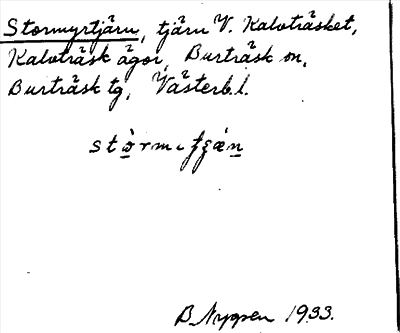 Stormyrtjärn, tjärn V. Kalvträsket,
Kalvträsk ägor, Burträsk sn,
Burträsk tg, Västerb. l.
B. Nyqen 1933.